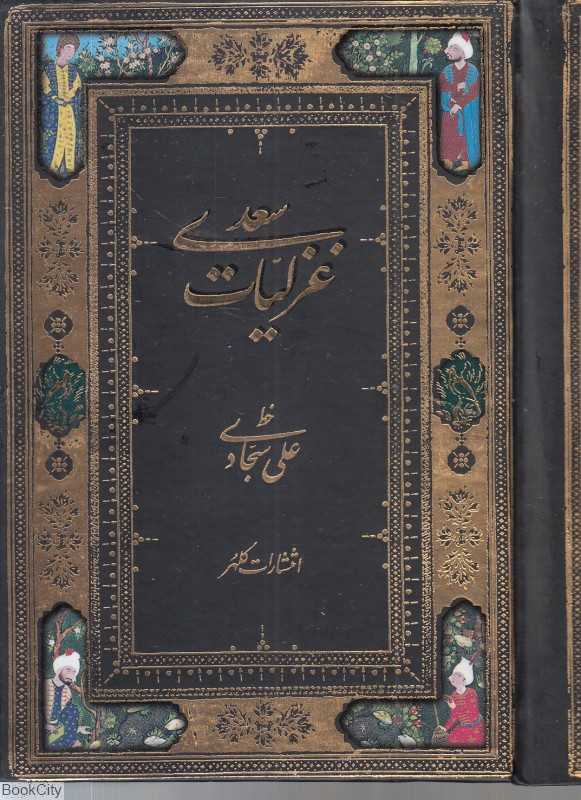 غزلیات سعدی
خط
علی سجادی
انتشارات کلهر
BookCity